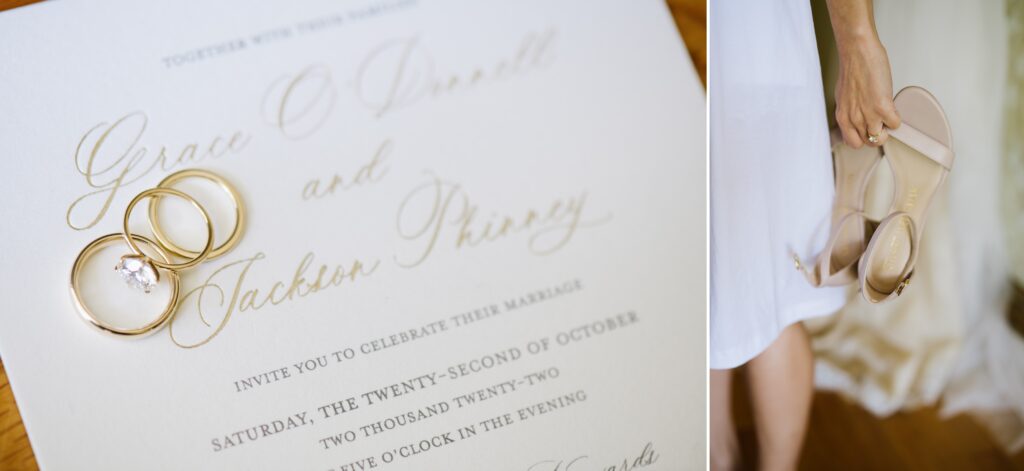 TOGETHER WITH THEIR FAMILIES
Grace O'Donnell
and
Jackson Phinney
INVITE YOU TO CELEBRATE THEIR MARRIAGE
SATURDAY, THE TWENTY-SECOND OF OCTOBER
TWO THOUSAND TWENTY-TWO
FIVE O'CLOCK IN THE EVENING